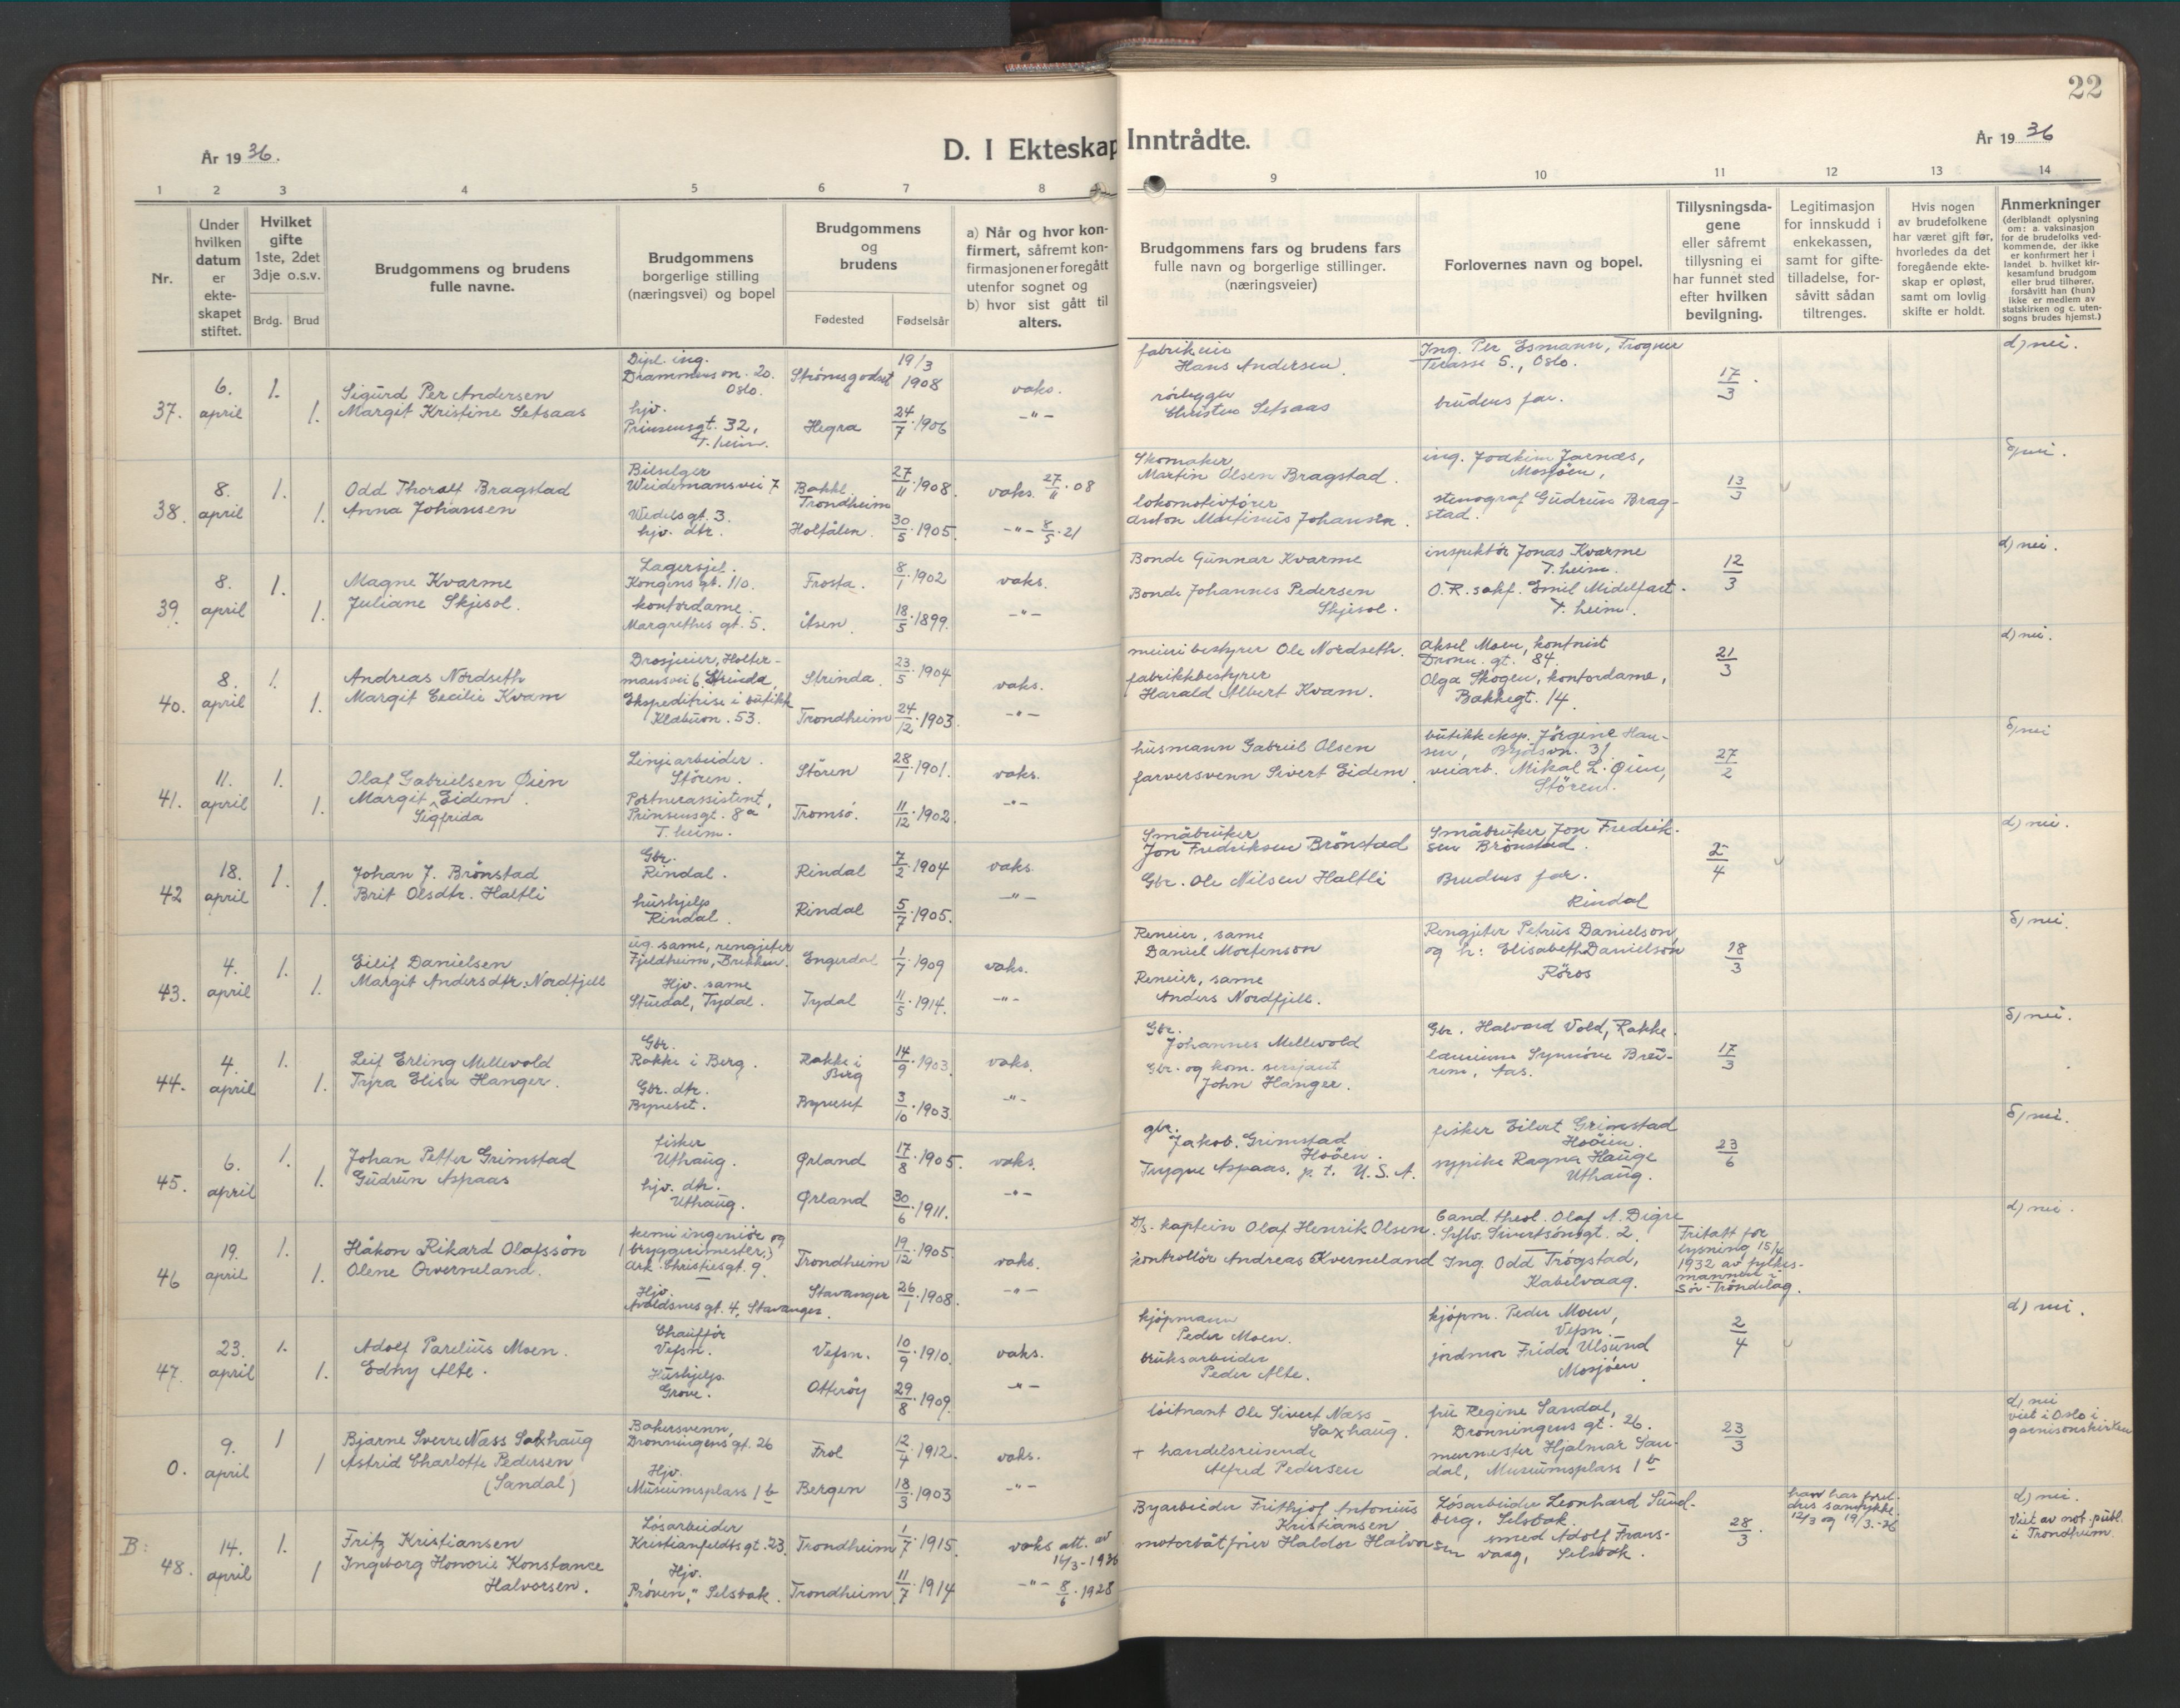 22
År 1936.
D. I Ekteskap Inntrådte.
År 1936
1 2 3 4 5 6 7 8 9 10 11 12 13 14
Nr.
Under hvilken datum er ekte-skapet stiftet.
Hvilket gifte 1ste, 2det 3dje o.s.v.
Brdg. Brud
Brudgommens og brudens fulle navne.
Brudgommens borgerlige stilling (næringsvei) og bopel
Brudgommens og brudens
Fødested Fødselsår
a) Når og hvor kon-firmert, såfremt kon-firmasjonen er foregått utenfor sognet og b) hvor sist gått til alters.
Brudgommens fars og brudens fars fulle navn og borgerlige stillinger. (næringsveier)
Forlovernes navn og bopel.
Tillysningsda-gene eller såfremt tillysning ei har funnet sted efter hvilken bevilgning.
Legitimasjon for innskudd i enkekassen, samt for gifte-tilladelse, for-såvitt sådan tiltrenges.
Hvis nogen av brudefolkene har været gift før, hvorledes da det foregående ekte-skap er opløst, samt om lovlig skifte er holdt.
Anmerkninger (deriblandt oplysning om: a. vaksinasjon for de brudefolks ved-kommende, der ikke er konfirmert her i landet b. hvilket kir-kesamfund brudgom eller brud tilhører, forsåvitt han (hun) ikke er medlem av statskirken og c. uten-sogns brudes hjemst.)
37. 6. april 1. Sigurd Per Andersen
Dipl. ing. Drammensvn. 20. Oslo. Strømsgodset 19/3 1908 vaks.
fabrikeier Hans Andersen. Ing. Per Esmann, Trogner Terasse 5., Oslo. 17/3. d) nei.
1. Margit Kristine Setsaas
hjv. Prinsensgt. 32, T.heim. Hegra 24/7. 1906 -"-
rørlegger Christen Setsaas brudens far.
38. 8. april 1. Odd Thoralf Bragstad
Bilselger Weidemansvei 7 Bakkl. Trondheim 27/11. 1908. vaks. 27/11. 08
Skomaker Martin Olsen Bragstad. ing. Joakim Jarnæs, Mosjøen, 13/3
1. Anna Johansen
Wedelsgt. 3. hjv. dtr. Holtålen. 30/5. 1905. -"- 8/5. 21
lokomotivfører Anton Martinus Johansen. stenograf Gudrun Brag-stad.
39. 8. april 1. Magne Kvarme
Lagersjef. Kongens gt. 110. Frosta. 8/1. 1902 vaks.
Bonde Gunnar Kvarme inspektør Jonas Kvarme T.heim. 12/3 d) nei.
1. Juliane Skjesol.
kontordame. Margrethes gt. 5. Åsen. 18/5. 1899. -"-
Bonde Johannes Pedersen Skjesol. O.R.sakf. Emil Midelfart. T.heim.
40. 8. april 1. Andreas Nordseth
Drosjeeier, Holter-mansvei 6, Strinda Strinda. 23/5. 1904 vaks.
meieribestyrer Ole Nordseth. Aksel Moen, kontorist Dronn. gt. 84. 21/3 d) nei.
1. Margit Cecilie Kvam
Ekspeditrise i butikk Klæbuvn. 53. Trondheim 24/12. 1903. -"-
fabrikkbestyrer Harald Albert Kvam. Olga Skogen, kontordame, Bakkegt. 14.
41. 11. april 1. Olaf Gabrielsen Øien
Linjearbeider. Støren. Støren 28/1. 1901. vaks.
husmann Gabriel Olsen butikkeksp. Jørgine Han-sen, 31 27/2
1. Margit Sigfrida Eidem.
Portnerassistent, Prinsensgt. 8a T.heim. Tromsø. 11/12. 1902. -"-
farversvenn Sivert Eidem. veiarb. Mikal L. Øien, Støren.
42 18. april 1. Johan J. Brønstad
Gbr. Rindal. Rindal 7/2. 1904 vaks.
Småbruker Jon Fredriksen Brønstad Småbruker Jon Fredrik-sen Brønstad. 2/4 d) nei.
1. Brit Olsdtr. Haltli
hushjelp Rindal. Rindal 5/7. 1905. -"-
Gbr. Ole Nilsen Haltli Brudens far. Rindal
43. 4. april 1. Eilif Danielsen
ug. same, rengjeter Fjeldheim, Brekken. Engerdal 1/7. 1909 vaks.
Reneier, same Daniel Mortenson Rengjeter Petrus Danielson og h: Elisabeth Danielson Røros 18/3
1. Margit Andersdtr. Nordfjell
Hjv. same Stuedal, Tydal. Tydal 11/5. 1914. -"-
Reneier, same Anders Nordfjell.
44. 4. april 1. Leif Erling Mellevold
Gbr. Rakke i Berg. Rakke i Berg 14/9. 1903. vaks.
Gbr. Johannes Mellevold Gbr. Halvard Vold, Rakke. 17/3
1. Tyra Elisa Hanger.
Gbr. dtr. Byneset. Byneset 3/10. 1903. -"-
Gbr. og kom. sersjant John Hanger.
45. 6. april 1. Johan Petter Grimstad
fisker Uthaug. Ørland 17/8. 1905. vaks.
gbr. Jakob. Grimstad Hoøen. fisker Eilert Grimstad Hoøien. 23/6
1. Gudrun Aspaas
hjv. dtr. Uthaug. Ørland 30/6. 1911. -"-
Trygve Aspaas, p. t. U.S.A. sypike Ragna Hauge Uthaug.
46 19. april 1. Håkon Rikard Olafssøn
kemi ingeniør og (bryggerimester.) Ark. Christiesgt. 9. Trondheim 19/12. 1905. vaks.
D/S. kaptein Olaf Henrik Olsen. Cand. theol. Olaf A. Digre Sylv. Sivertsønsgt. 2. Fritatt for lysning 15/4 1932 av fylkes-mannen i Sør-Trøndelag. d) nei.
1. Olene Qverneland.
Hjv. Avaldsnes gt. 4, Stavanger. Stavanger 26/1. 1908. -"-
kontrollør Andreas Kverneland Ing. Odd Trøgstad, Kabelvaag.
47. 23. april 1. Adolf Parelius Moen.
Chauffør Vefsn. Vefsn. 10/9. 1910. vaks.
kjøpmann Peder Moen. kjøpm. Peder Moen, Vefsn. 2/4 d) nei.
1. Edny Alte.
Hushjelp. Grove. Otterøy 29/8. 1909. -"-
bruksarbeider Peder Alte. jordmor Frida Ulsund Mosjøen.
0. 9. april 1 Bjarne Sverre Næss Saxhaug
Bakersvenn, Dronningens gt. 26 Frol 12/4. 1912. vaks.
løitnant Ole Sivert Næss Saxhaug. fru Regine Sandal, Dronningens gt. 26. 23/3 d) nei viet i Oslo i garnisonskirken
1 Astrid Charlotte Pedersen (Sandal)
Hjv. Museumsplass 1 b Bergen 18/3. 1903 -"-
+ handelsreisende Alfred Pedersen murmester Hjalmar San-dal, Museumsplass 1 b
B: 48. 14. april 1. Fritz Kristiansen
Løsarbeider Kristianfeldtsgt. 23. Trondheim 1/7. 1915. vaks att. av 16/3-1936
Byarbeider Frithjof Antonius Kristiansen Løsarbeider Leonhard Sund-berg, Selsbak. 28/3. han har forel-dres samtykke 12/3 og 19/3.-36 d) nei. Viet av not. publ. i Trondheim
1 Ingeborg Honorie Konstance Halvorsen.
Hjv. "Prøven," Selsbak. Trondheim 11/7. 1914 -"- 8/6. 1928
motorbåtfører Haldor Halvorsen smed Adolf Frans-vaag, Selsbak.